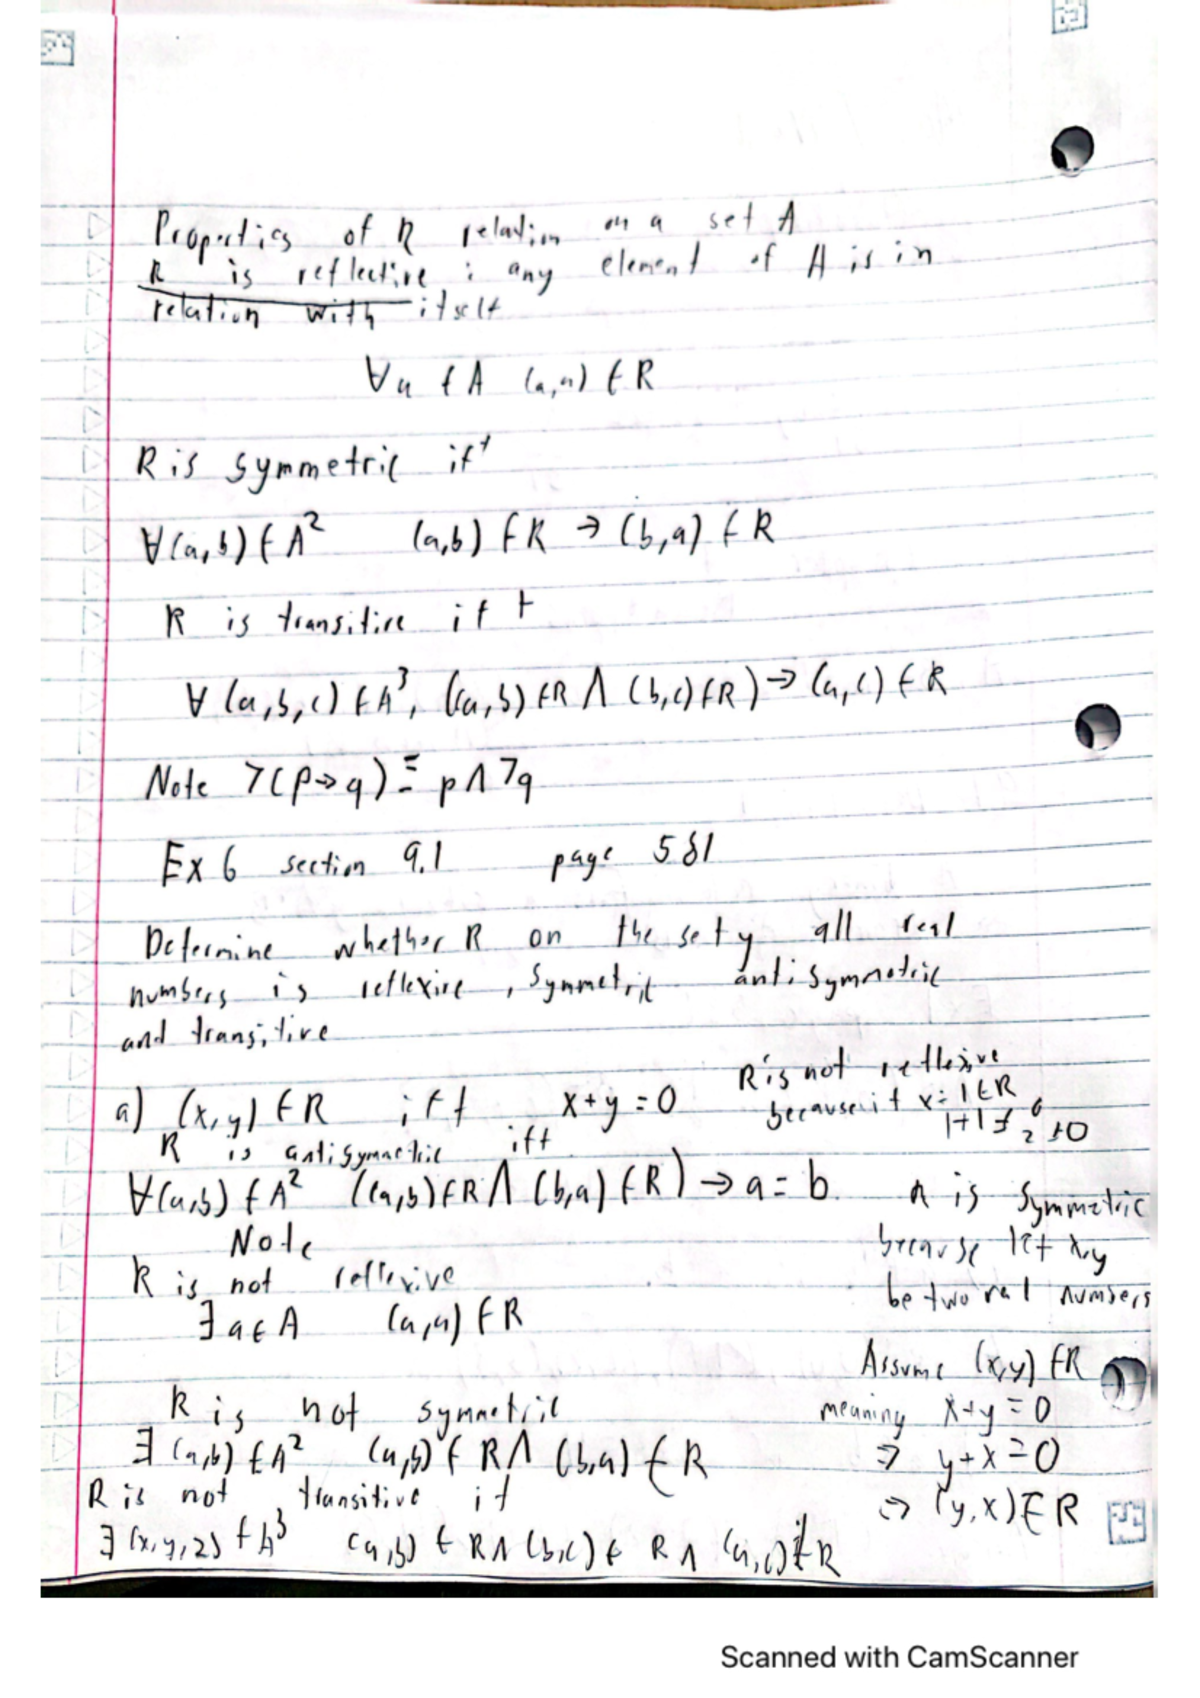 Properties of R relation on a set A
R is reflective : any element of A is in
relation with itself
∀a ∈ A (a,a) ∈ R
R is symmetric iff
∀(a,b) ∈ A² (a,b) ∈ R → (b,a) ∈ R
R is transitive iff
∀ (a,b,c) ∈ A³, ((a,b) ∈ R ∧ (b,c) ∈ R) → (a,c) ∈ R
Note ¬(p→q) ≡ p ∧ ¬q
Ex 6 section 9.1 page 581
Determine whether R on the set of all real
numbers is reflexive, symmetric antisymmetric
and transitive
a) (x,y) ∈ R iff x+y = 0
R is antisymmetric iff
∀(a,b) ∈ A² ((a,b) ∈ R ∧ (b,a) ∈ R) → a = b
Note
R is not reflexive
∃ a ∈ A (a,a) ∈ R
R is not symmetric
∃ (a,b) ∈ A² (a,b) ∈ R ∧ (b,a) ∈ R
R is not transitive if
∃ (x,y,z) ∈ A³ (a,b) ∈ R ∧ (b,c) ∈ R ∧ (a,c) ∉ R
R is not reflexive
because if x=1 ∈ R
1+1 ≠ 0
2 ≠ 0
R is symmetric
because let x,y
be two real numbers
Assume (x,y) ∈ R
meaning x+y = 0
⇒ y+x = 0
⇒ (y,x) ∈ R
Scanned with CamScanner